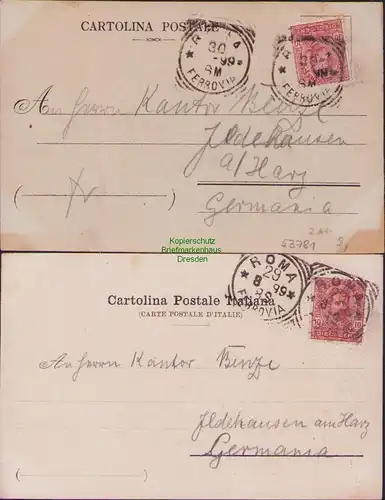 CARTOLINA POSTALE
ROMA
30
-99
8M
FERROVIA
30
99
8M
FERROVIA
An Herrn Kantor Benze
Ildehausen
a/Harz
Germania
Kopierschutz
Briefmarkenhaus
Dresden
53781
ROMA
29
8 99
FERROVIA
Cartolina Postale Italiana
(CARTE POSTALE D'ITALIE)
An Herrn Kantor Benze
Ildehausen am Harz
Germania